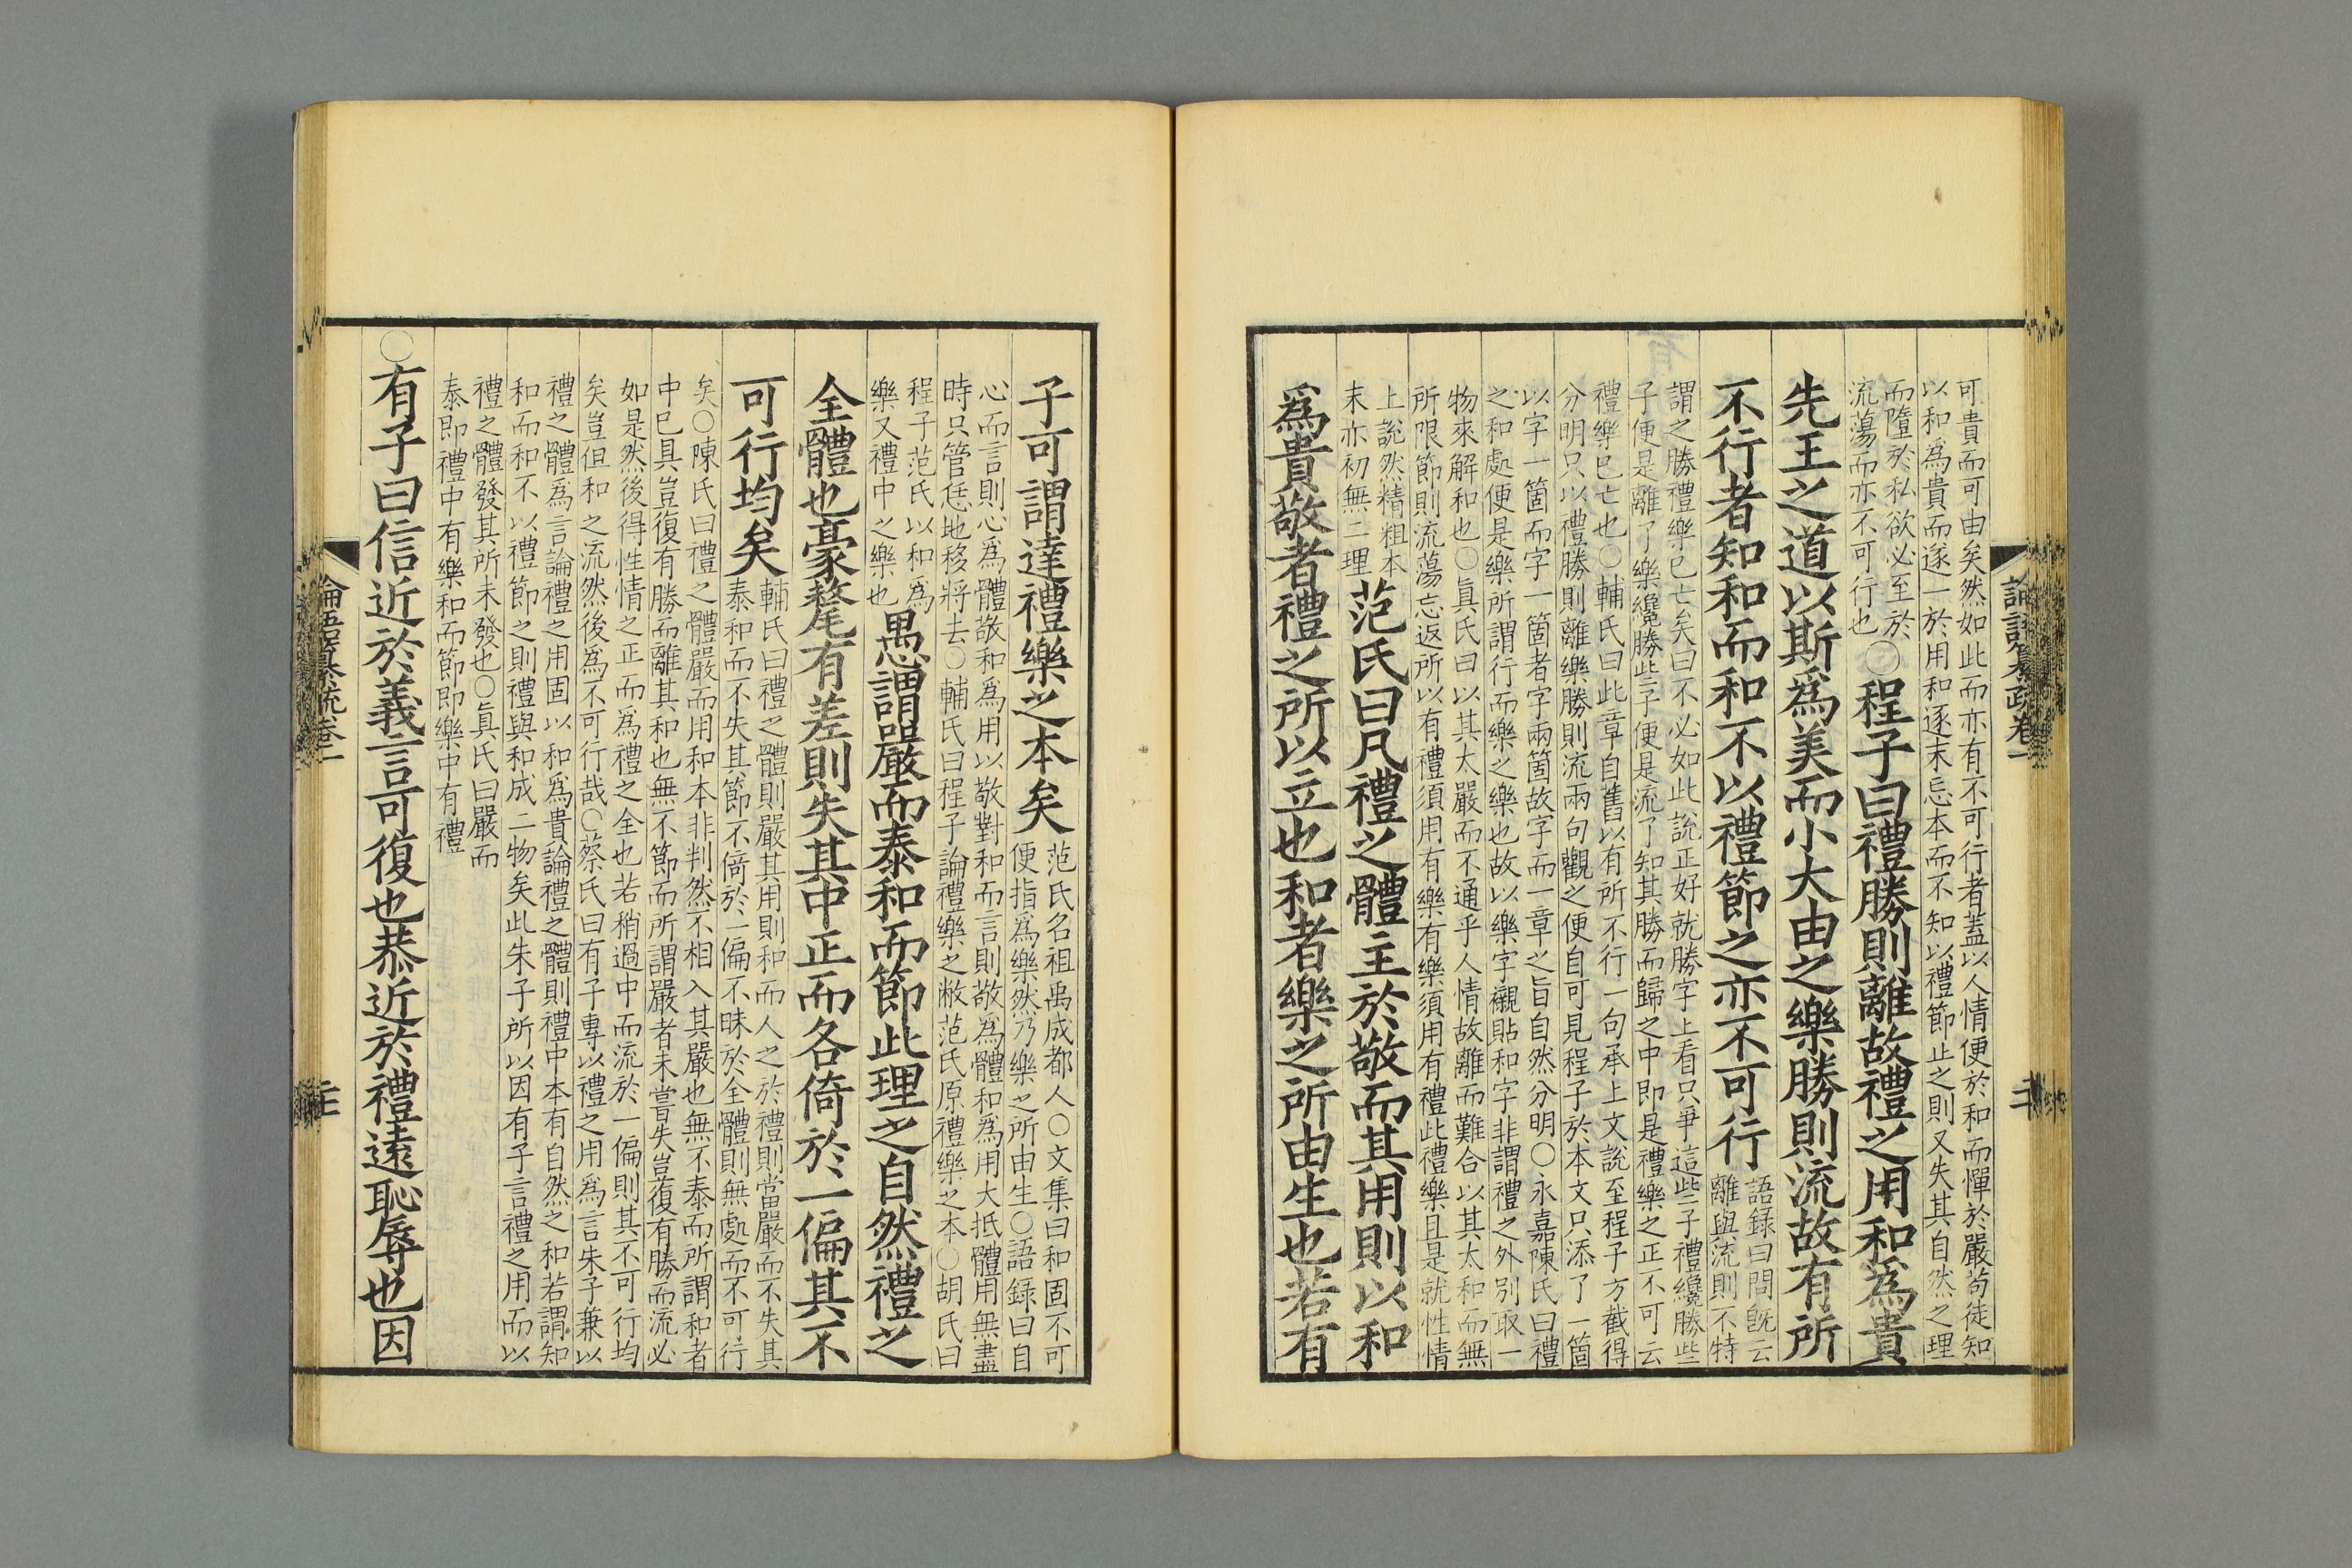 可貴而可由矣然如此而亦有不可行者蓋以人情便於和而憚於嚴苟徒知
以和爲貴而遂一於用和逐末忘本而不知以禮節止之則又失其自然之理
而墮於私欲必至於
流蕩而亦不可行也
○程子曰禮勝則離故禮之用和爲貴
先王之道以斯爲美而小大由之樂勝則流故有所
不行者知和而和不以禮節之亦不可行
語録曰問旣云
離與流則不特
謂之勝禮樂已亡矣曰不必如此說正好就勝字上看只爭這些子禮纔勝些
子便是離了樂纔勝些子便是流了知其勝而歸之中即是禮樂之正不可云
禮樂已亡也○輔氏曰此章自舊以有所不行一句承上文說至程子方截得
分明只以禮勝則離樂勝則流兩句觀之便自可見程子於本文只添了一箇
以字一箇而字一箇者字兩箇故字而一章之旨自然分明○永嘉陳氏曰禮
之和處便是樂所謂行而樂之樂也故以樂字襯貼和字非謂禮之外別取一
物來解和也○眞氏曰以其太嚴而不通乎人情故離而難合以其太和而無
所限節則流蕩忘返所以有禮須用有樂有樂須用有禮此禮樂且是就性情
上說然精粗本
末亦初無二理
范氏曰凡禮之體主於敬而其用則以和
爲貴敬者禮之所以立也和者樂之所由生也若有
論語纂疏卷一
子可謂達禮樂之本矣
范氏名祖禹成都人○文集曰和固不可
便指爲樂然乃樂之所由生○語録曰自
心而言則心爲體敬和爲用以敬對和而言則敬爲體和爲用大抵體用無盡
時只管恁地移將去○輔氏曰程子論禮樂之敝范氏原禮樂之本○胡氏曰
程子范氏以和爲
樂又禮中之樂也
愚謂嚴而泰和而節此理之自然禮之
全體也豪釐有差則失其中正而各倚於一偏其不
可行均矣
輔氏曰禮之體則嚴其用則和而人之於禮則當嚴而不失其
泰和而不失其節不倚於一偏不昧於全體則無處而不可行
矣○陳氏曰禮之體嚴而用和本非判然不相入其嚴也無不泰而所謂和者
中已具豈復有勝而離其和也無不節而所謂嚴者未嘗失豈復有勝而流必
如是然後得性情之正而爲禮之全也若稍過中而流於一偏則其不可行均
矣豈但和之流然後爲不可行哉○蔡氏曰有子專以禮之用爲言朱子兼以
禮之體爲言論禮之用固以和爲貴論禮之體則禮中本有自然之和若謂知
和而和不以禮節之則禮與和成二物矣此朱子所以因有子言禮之用而以
禮之體發其所未發也○眞氏曰嚴而
泰即禮中有樂和而節即樂中有禮
○有子曰信近於義言可復也恭近於禮遠恥辱也因